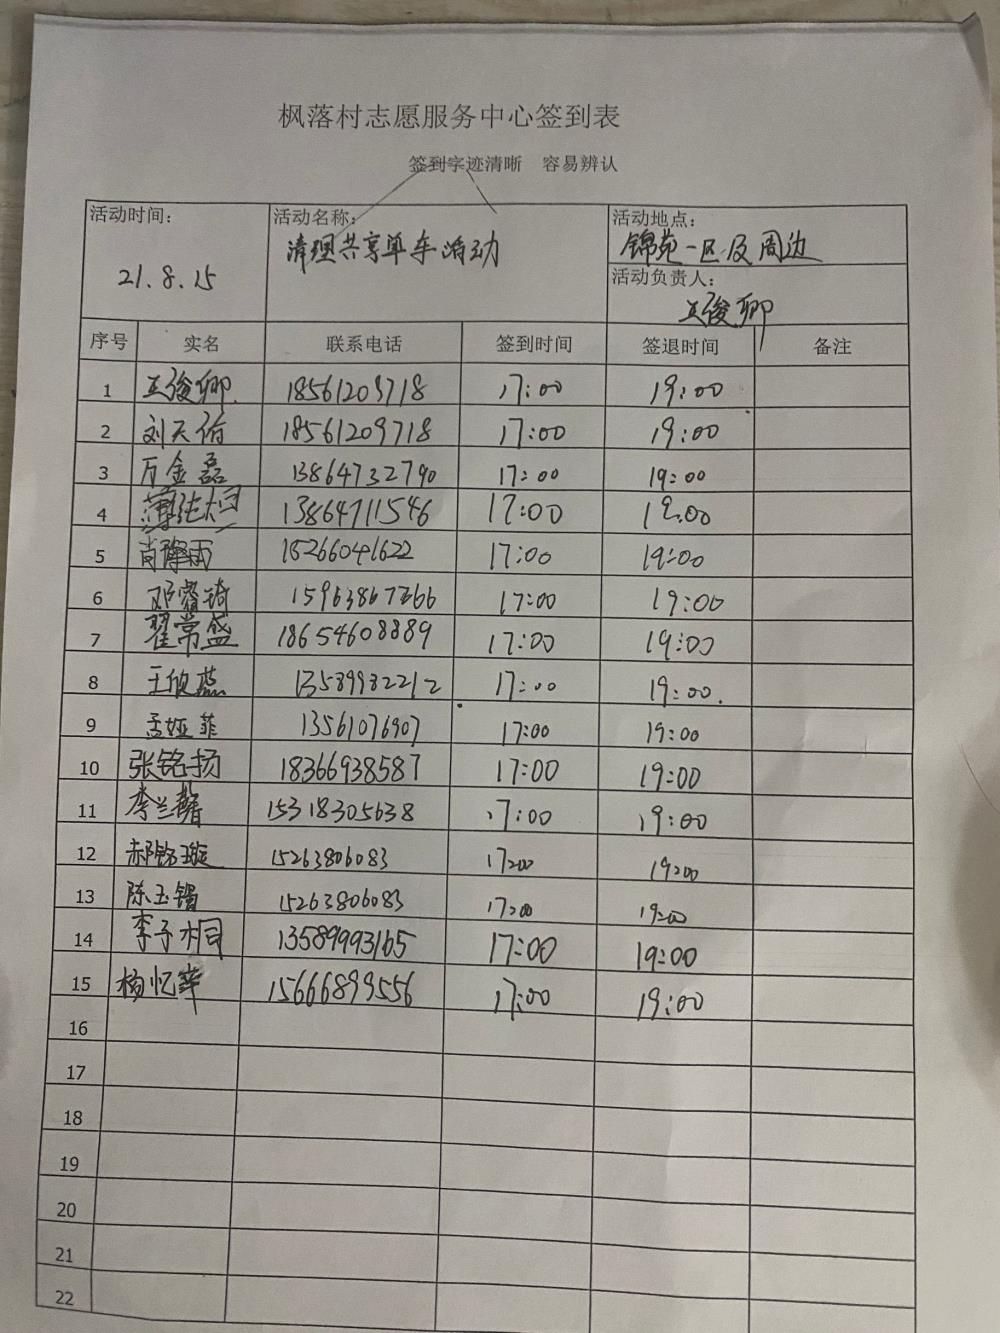 枫落村志愿服务中心签到表
签到字迹清晰 容易辨认
活动时间: 活动名称: 活动地点:
21.8.15 清理共享单车活动 锦苑一区及周边
活动负责人:
王俊卿
序号 实名 联系电话 签到时间 签退时间 备注
1 王俊卿 18561209718 17:00 19:00
2 刘天佑 18561209718 17:00 19:00
3 万金磊 13864732790 17:00 19:00
4 13864711546 17:00 19:00
5 肖 雨 18266041622 17:00 19:00
6 邓睿琦 15963867266 17:00 19:00
7 翟常盛 18654608889 17:00 19:00
8 王欣蕊 13589982212 17:00 19:00.
9 孟娅菲 13561076907 17:00 19:00
10 张铭扬 18366938587 17:00 19:00
11 李兰馨 15318305638 17:00 19:00
12 郝铭璇 15263806083 17:00 19:00
13 陈玉 15263806083 17:00 19:00
14 李子桐 13589993165 17:00 19:00
15 杨忆 15666899556 17:00 19:00
16
17
18
19
20
21
22